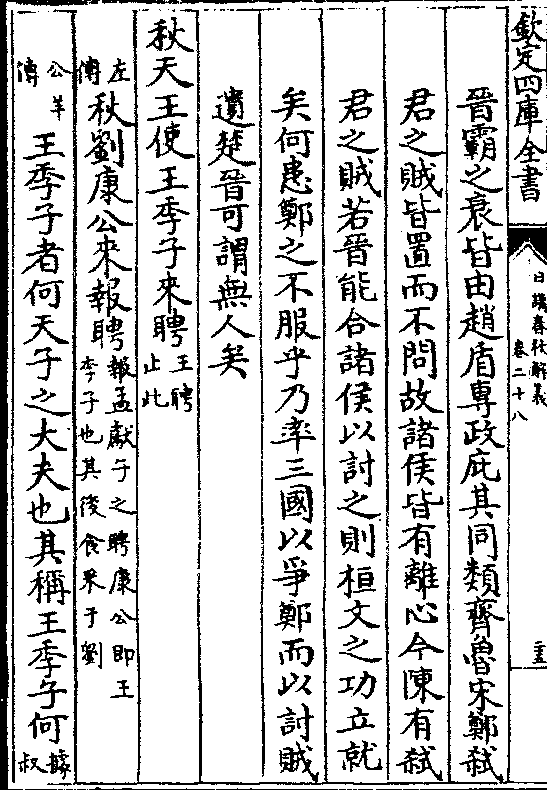 欽定四庫全書
日講春秋解義
卷二十八
晉霸之衰皆由趙盾專政庇其同類齊魯宋鄭弒
君之賊皆置而不問故諸侯皆有離心今陳有弒
君之賊若晉能合諸侯以討之則桓文之功立就
矣何患鄭之不服乎乃率三國以爭鄭而以討賊
遺楚晉可謂無人矣
秋天王使王季子來聘王聘止此
左傳秋劉康公來報聘報孟獻子之聘康公即王季子也其後食采于劉
公羊傳王季子者何天子之大夫也其稱王季子何據叔